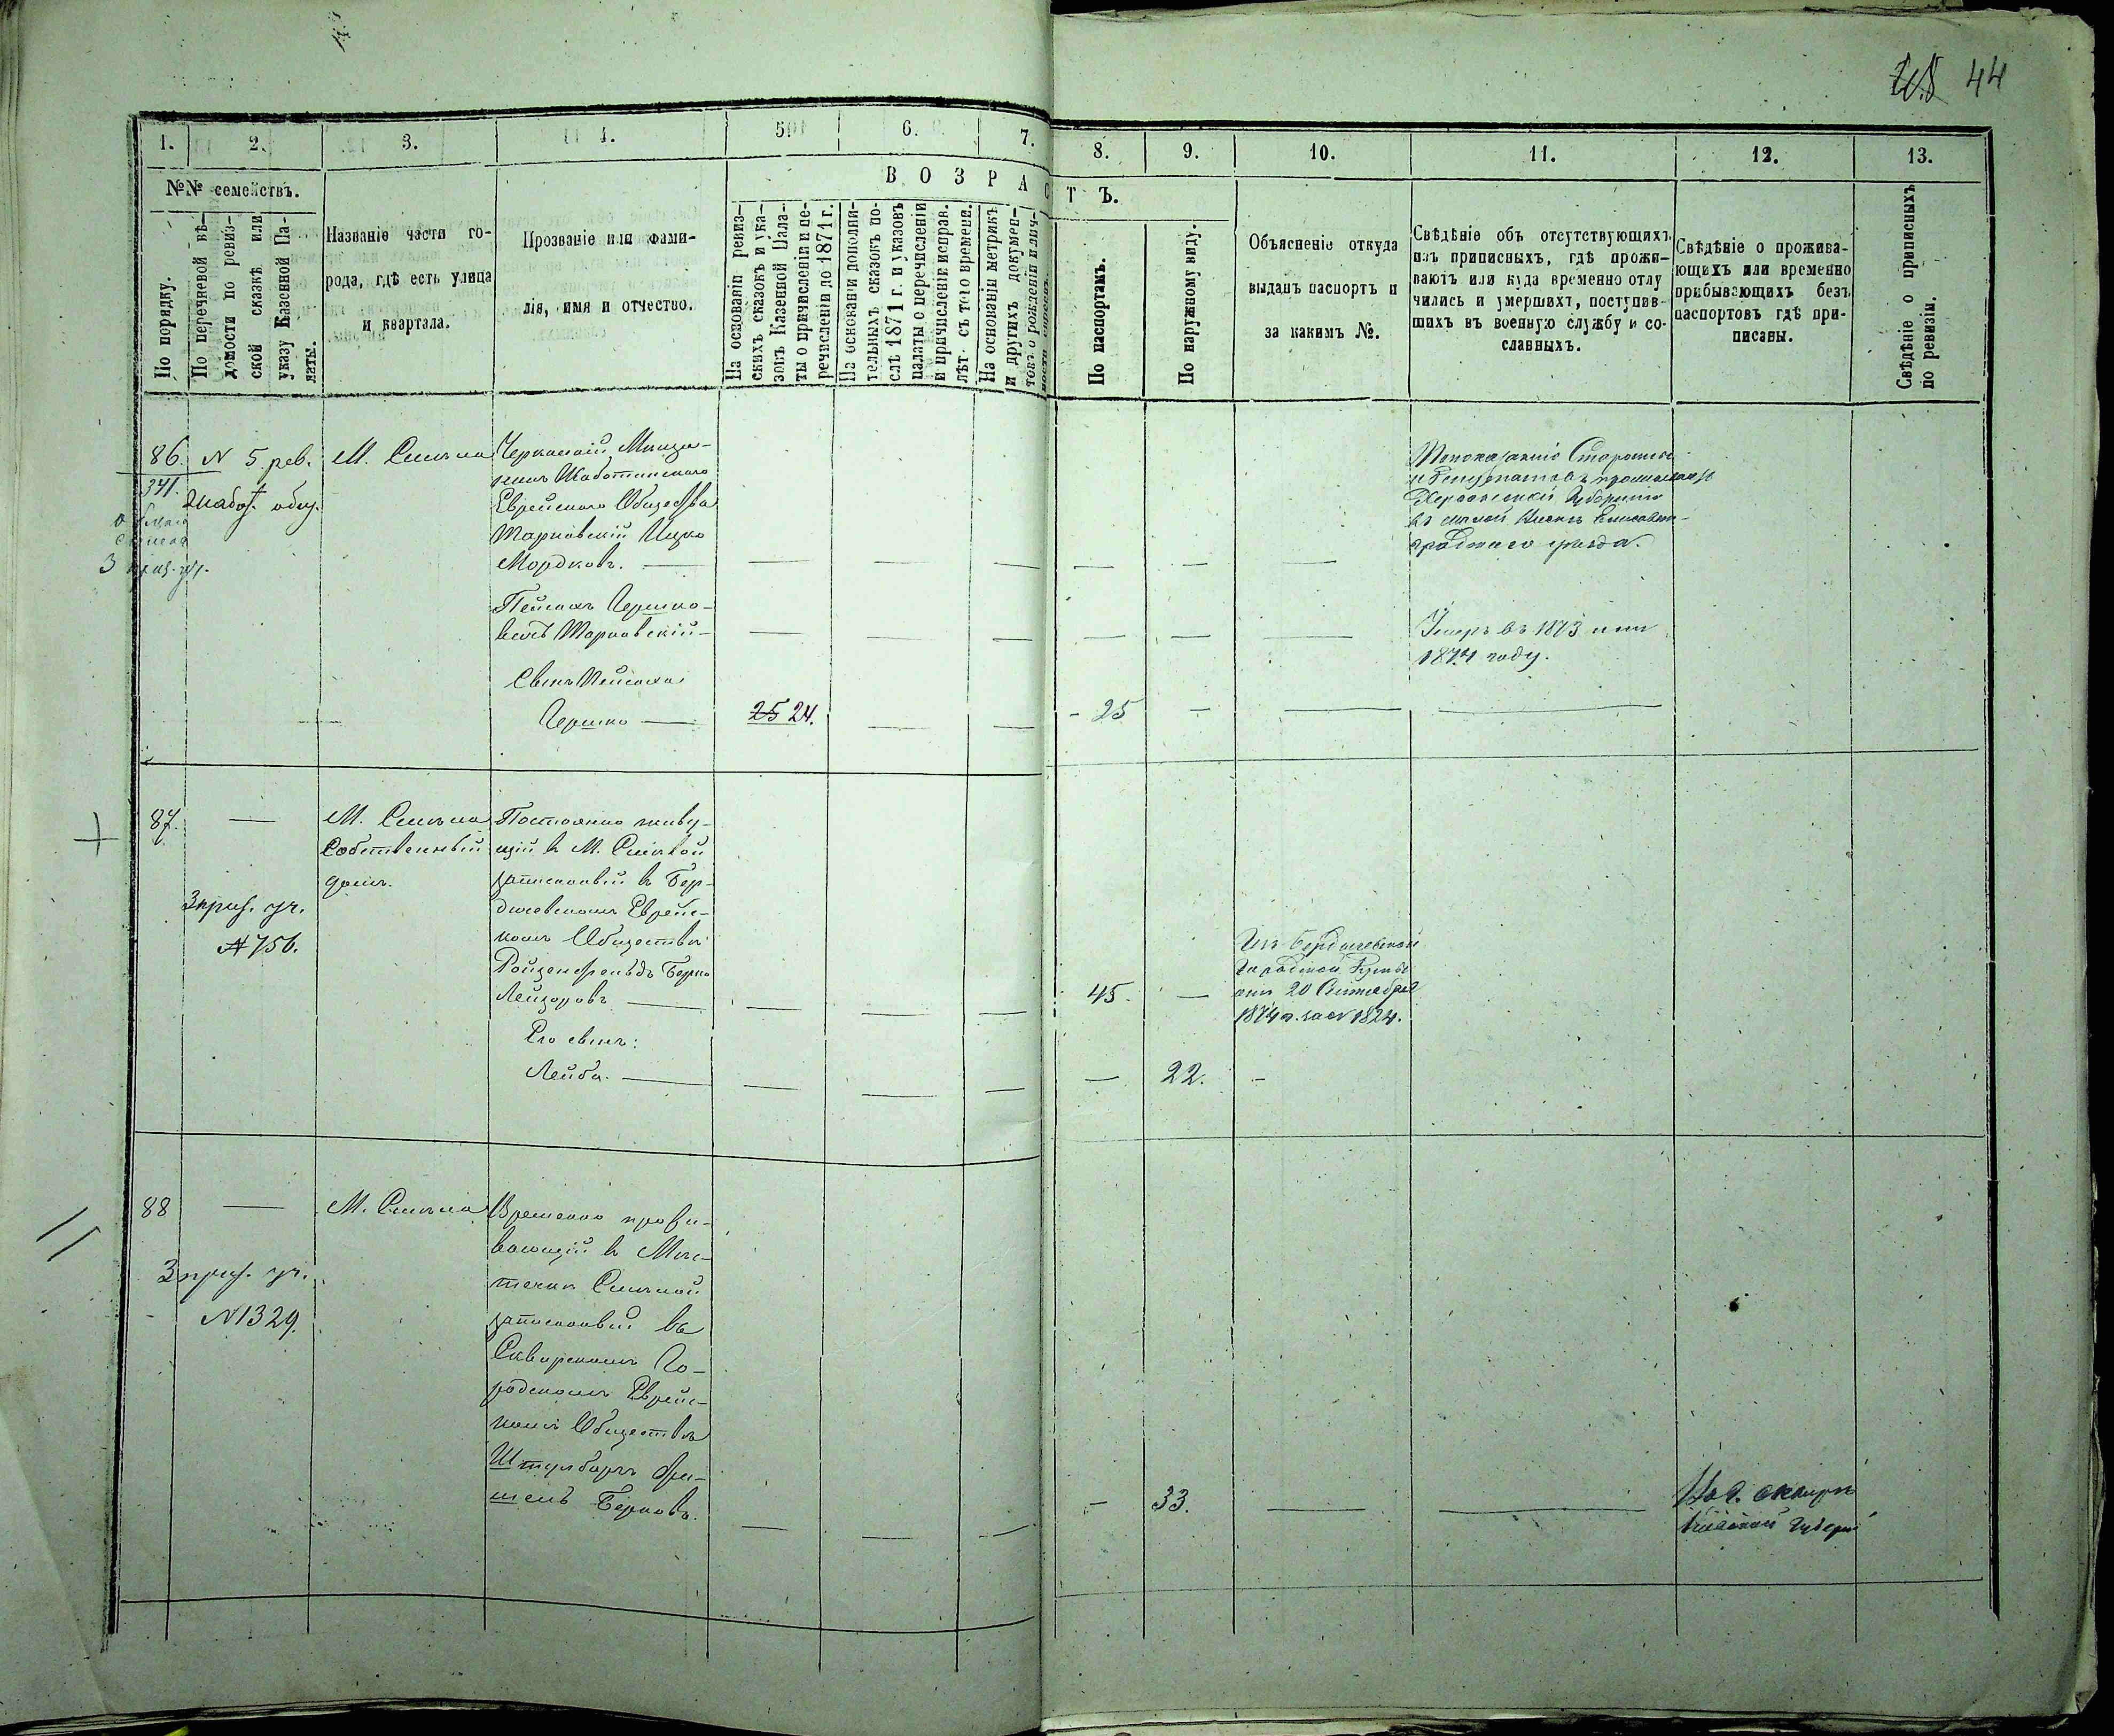 44
1. 2. 3. 4. 5. 6. 7. 8. 9. 10. 11. 12. 13.
№№ семействъ.
По порядку.
По перечневой вѣ-
домости по ревиз-
ской сказкѣ или
указу Казенной Па-
латы.
Названіе части го-
рода, гдѣ есть улица
и квартала.
Прозваніе или фами-
лія, имя и отчество.
ВОЗРАСТЪ.
На основаніи ревиз-
скихъ сказокъ и ука-
зовъ Казенной Пала-
ты о причисленіи и пе-
речисленіи до 1871 г.
На основаніи дополни-
тельныхъ сказокъ по-
слѣ 1871 г. и указовъ
палаты о перечисленіи
и причисленіи исправ.
лѣт. съ того времени.
На основаніи метрикъ
и другихъ докумен-
товъ о рожденіи и лич-
ности евреевъ.
По паспортамъ.
По наружному виду.
Объясненіе откуда
выданъ паспортъ и
за какимъ №.
Свѣдѣніе объ отсутствующихъ
изъ приписныхъ, гдѣ прожи-
ваютъ или куда временно отлу
чились и умершихъ, поступив-
шихъ въ военную службу и со-
сланныхъ.
Свѣдѣніе о прожива-
ющихъ или временно
прибывающихъ безъ
паспортовъ гдѣ при-
писаны.
Свѣдѣніе о приписныхъ
по ревизіи.
86.
341.
3 приз. уч.
N 5 рев.
Жабот. общ.
М. Смѣла
Черкаскій Мѣща-
нинъ Жаботинскаго
Еврейскаго Общества
Тарновскій Ицко
Мордковъ.
По показанію Старосты
и Депутатовъ проживаетъ
Херсонской Губерніи
Елисавет-
градскаго уѣзда.
Пейсахъ Гершко-
вичъ Тарновскій
Умеръ въ 1873 или
1874 году.
Сынъ Пейсаха
Гершко
25 24.
25
87.
3 приз. уч.
N 756.
М. Смѣла
Собственный
домъ.
Постоянно живу-
щій в М. Смѣлой
записанный в Бер-
дичевскомъ Еврейс-
комъ Обществѣ
Ройзенфельдъ Берко
Лейзоровъ
45.
Изъ Бердичевской
Городской Думы
отъ 20 Сентября
1874 г. за N 1824.
Его сынъ:
Лейба.
22.
88
3 приз. уч.
N 1329.
М. Смѣла
Временно прожи-
вающій в Мѣс-
течкѣ Смѣлой
записанный въ
Сквирскомъ Го-
родскомъ Еврейс-
комъ Обществѣ
Бѳрковъ.
33.
Кіевской Губерн